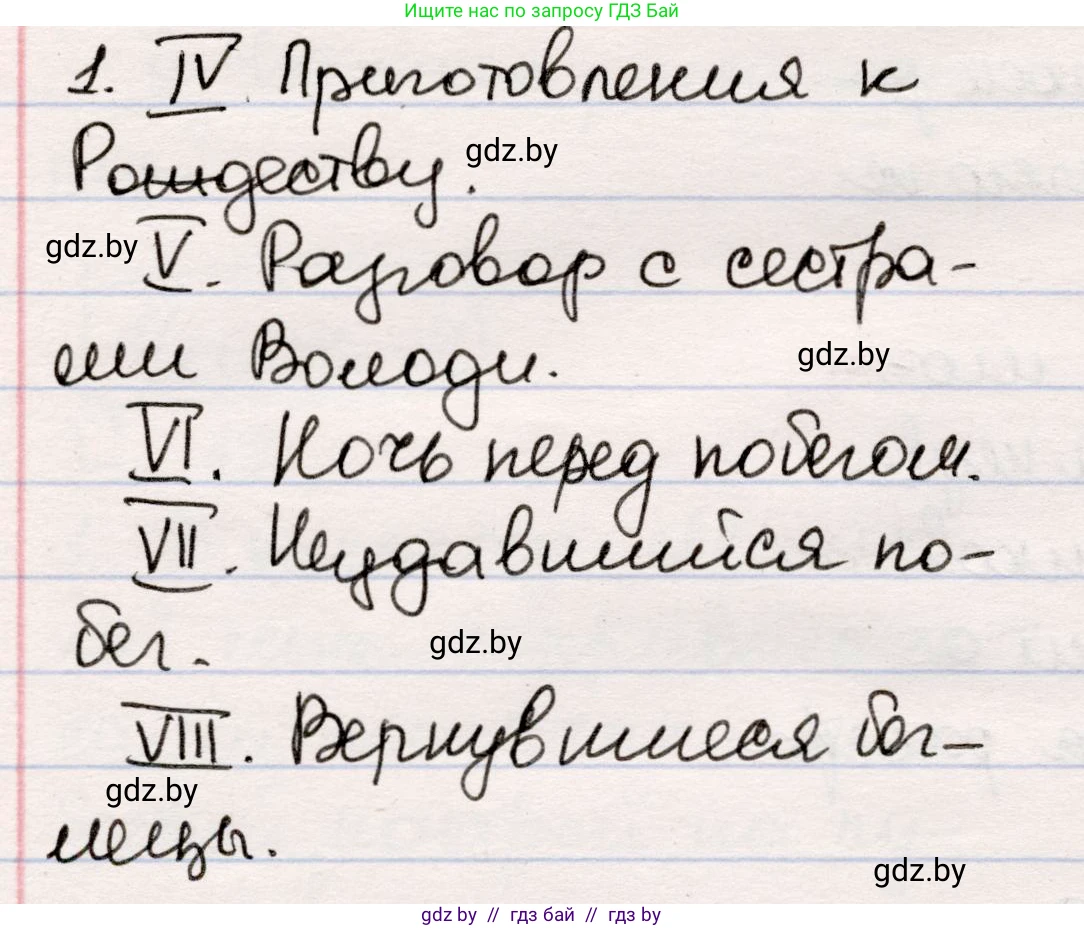 Ищите нас по запросу ГДЗ Бай
1. IV Приготовления к
Рождеству.
gdz.by
gdz.by
V. Разговор с сестра-
ми Володи.
gdz.by
VI. Ночь перед побегом.
VII. Неудавшийся по-
бег.
gdz.by
VIII. Вернувшиеся бег-
лецы.
gdz.by
gdz.by
gdz by // гдз бай // гдз by